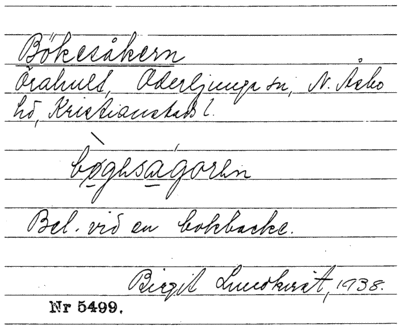 Bökesåkern
Örahult, Oderljunga sn, N. Åsbo
hd, Kristianstads l.
bögesagoren
Bel. vid en bokbacke.
Birgit Lundkvist, 1938.
Nr 5499.